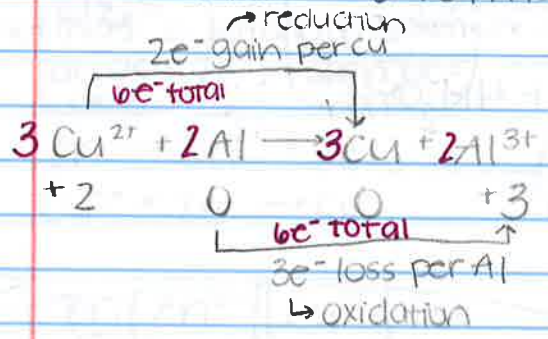 → reduction
2e⁻ gain per cu
6e⁻ total
3 Cu²⁺ + 2 Al → 3Cu + 2Al³⁺
+2 0 0 +3
6e⁻ total
3e⁻ loss per Al
↳ oxidation